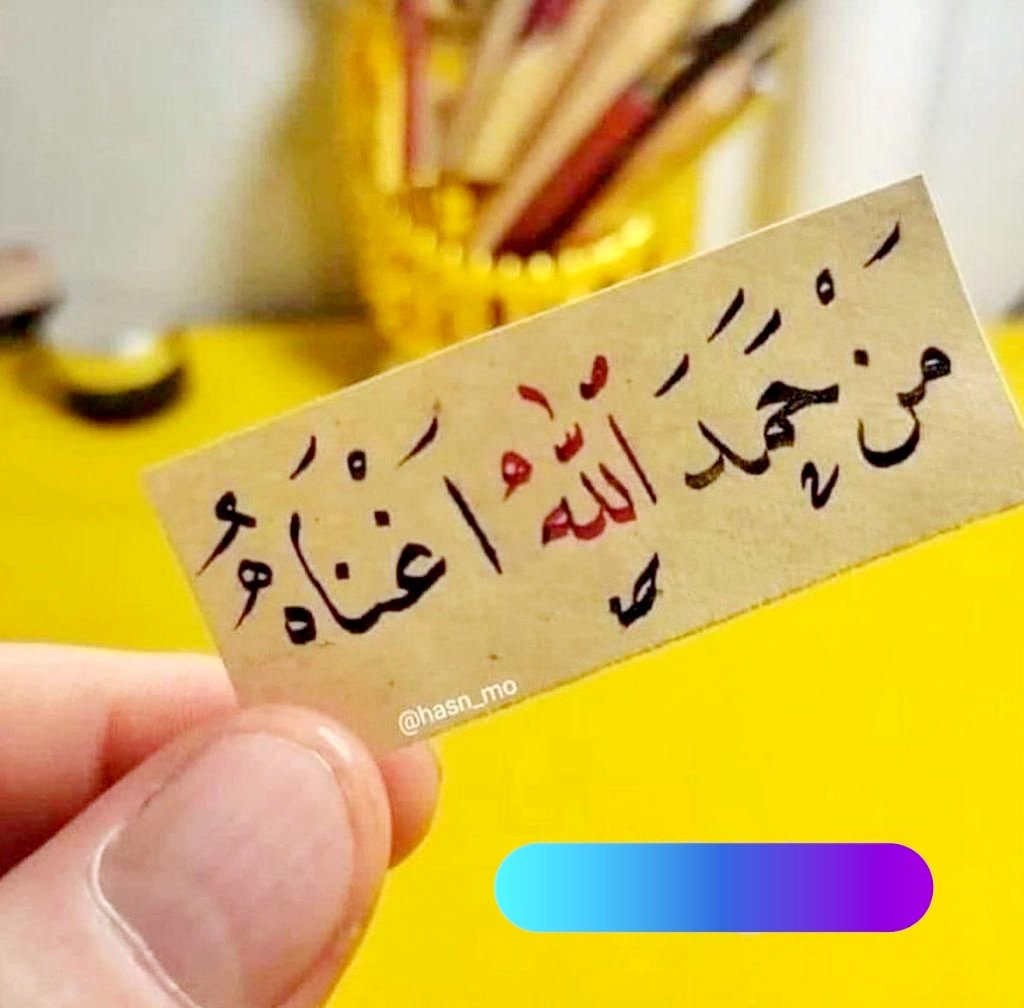 مَنْ حَمَدَ اللّهُ اَغْنَاهُ
@hasn_mo